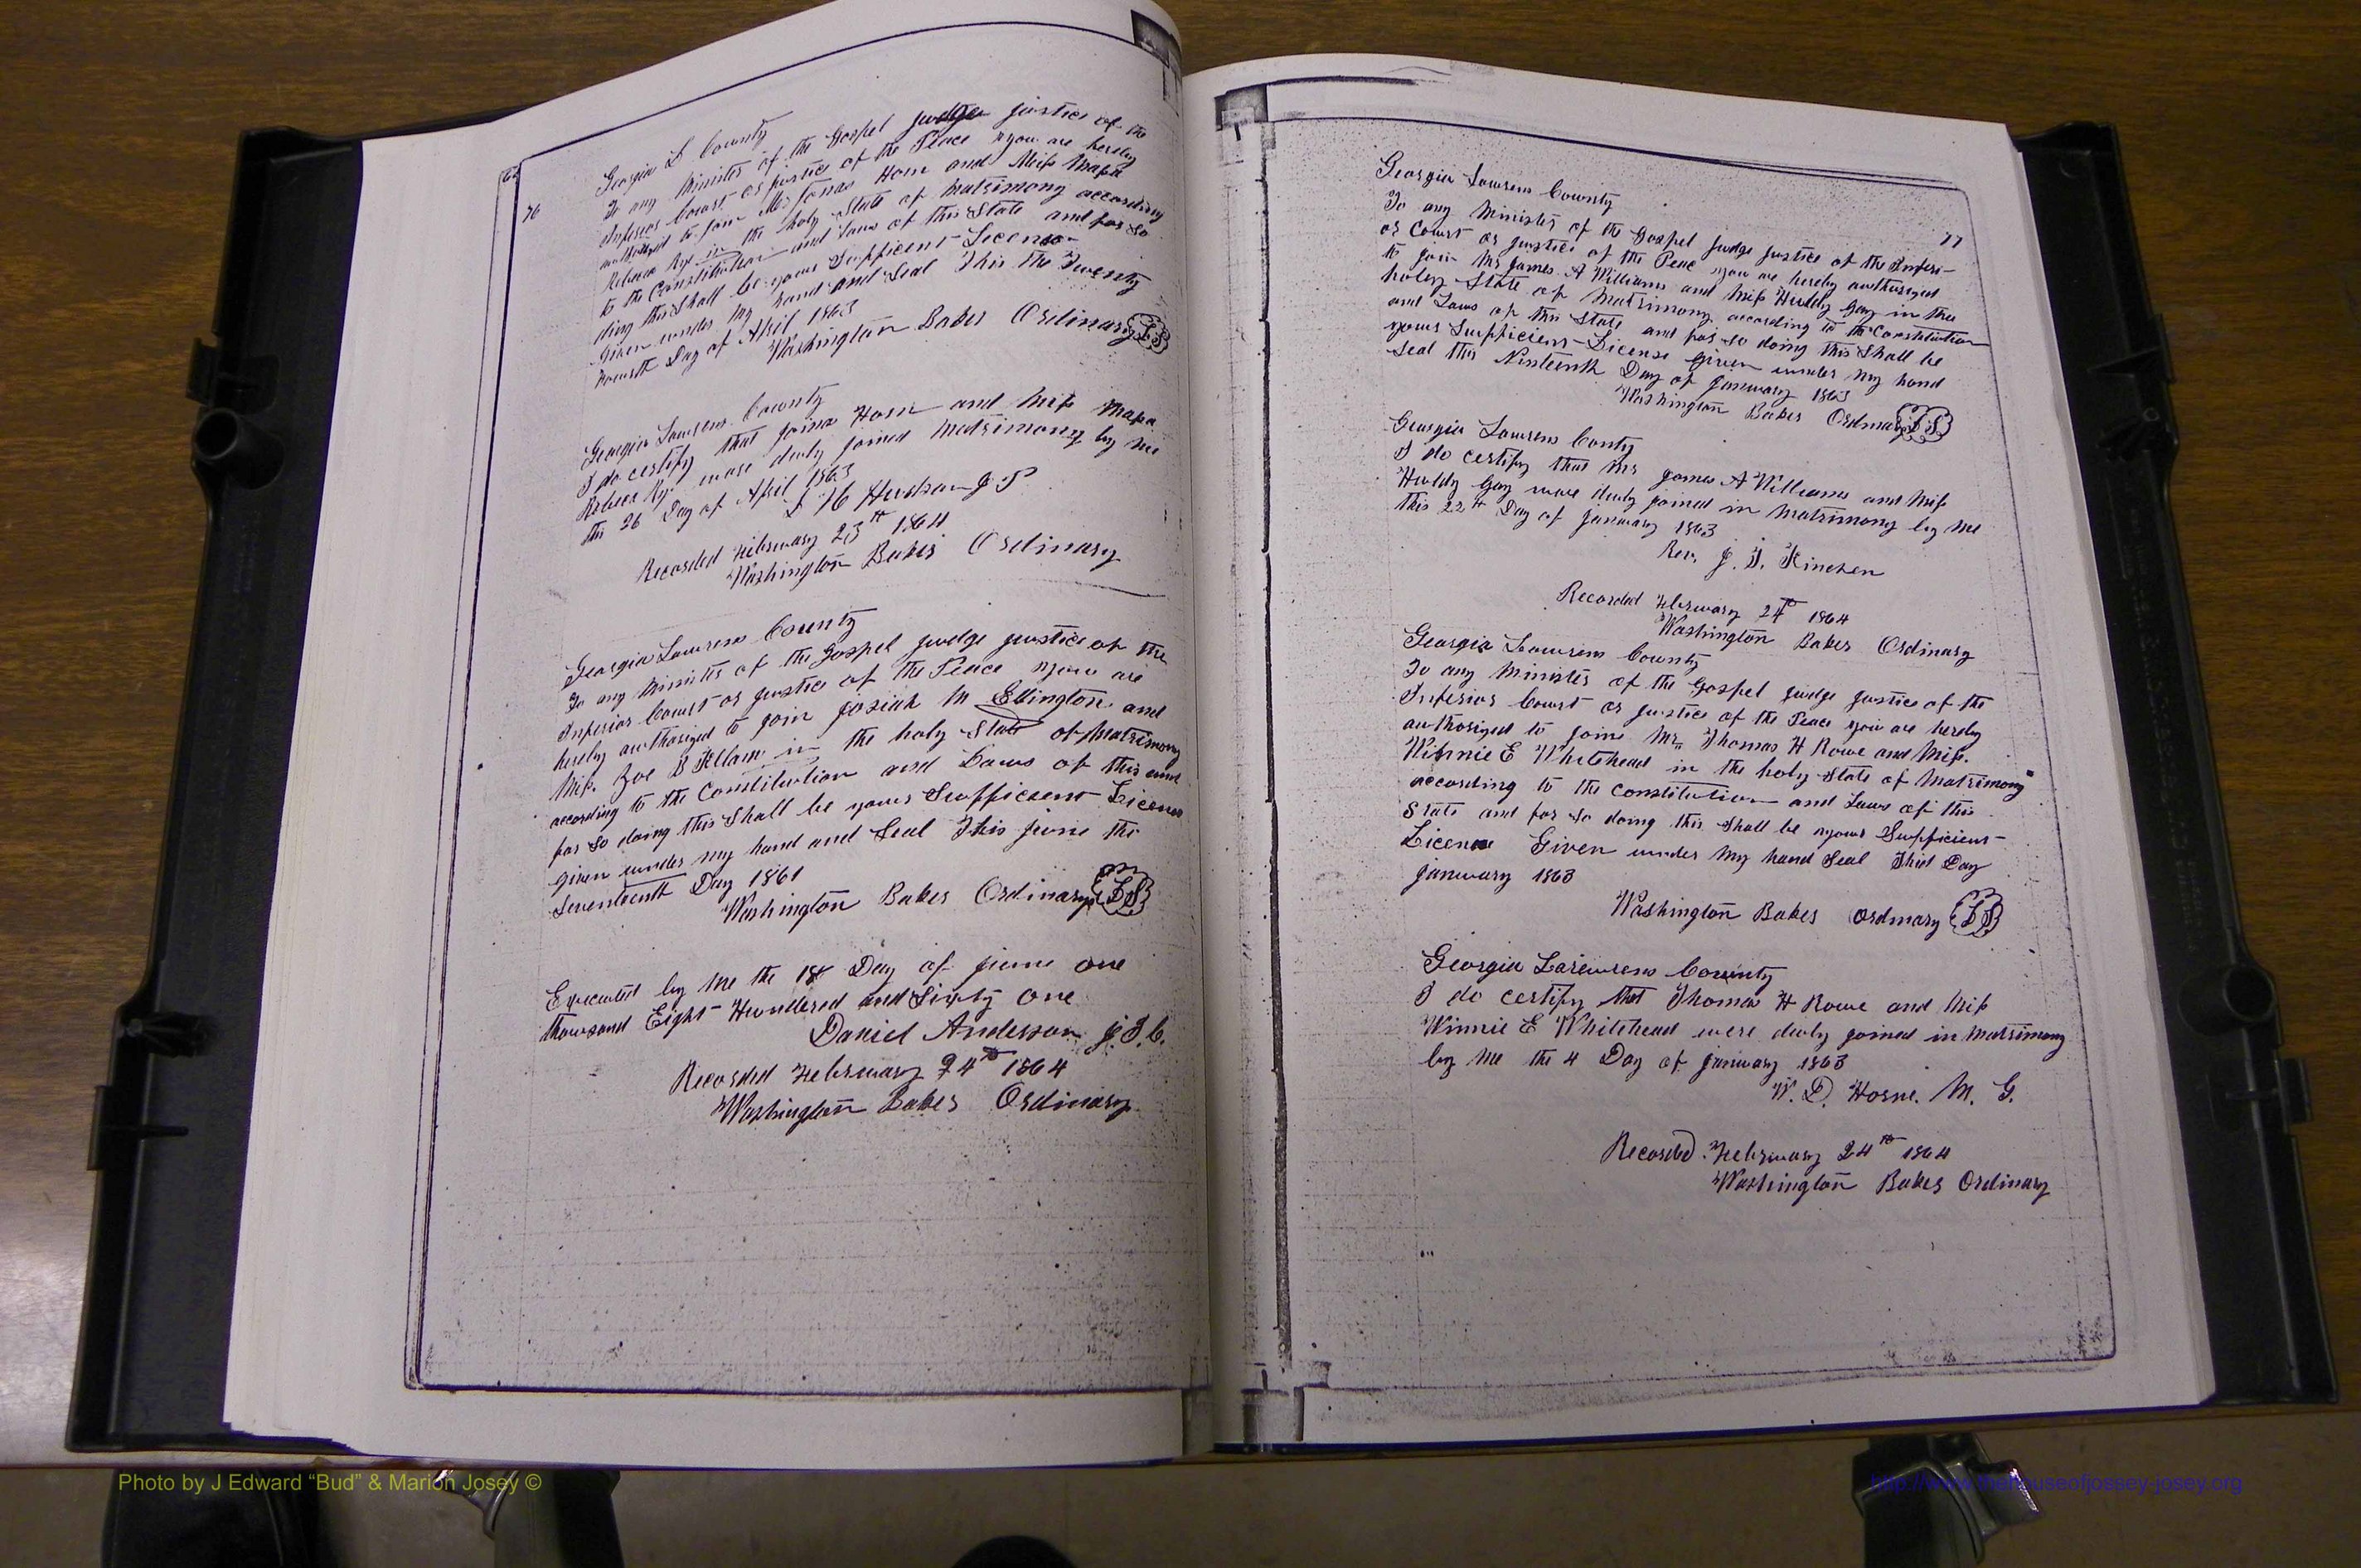 76
Georgia L County
To any Minister of the Gospel judge justice of the
Inferior Court or justice of the Peace you are hereby
authorized to join Mr Jonas Horn and Miss
Rebeca in the holy State of Matrimony according
to the Constitution and Laws of this State and for so
ding this Shall be your Sufficent License
Given under My hand and Seal This the Twenty
Day of April 1863
Washington Baker Ordinary L S
Georgia Laurens County
I do certify that Horn and Miss
Rebeca were duly joined Matrimony by me
the 26 Day of April 1863
J P
Recorded February 23th 1864
Washington Baker Ordinary
Georgia Laurens County
To any Minister of the Gospel judge justice of the
Inferior Court or justice of the Peace you are
hereby authorized to join Josiah M Ellington and
Miss. Zoe B Kellam in the holy State of Matrimony
according to the Constitution and Laws of this and
for so doing this Shall be your Sufficient License
Given under my hand and Seal This June the
Seventeenth Day 1861
Washington Baker Ordinary L S
Executed by Me the 18 Day of June one
thousand Eight Hundered and Sixty one
Daniel Anderson J. I. C.
Recorded February 24th 1864
Washington Baker Ordinary
77
Georgia Laurens County
To any Minister of the Gospel judge justice of the Inferi-
or Court or justice of the Peac you are hereby authorized
to join Mr James A Williams and Miss Huldy Gay in the
holy State of Matrimony according to the Constitution
and Laws of this State and for so doing this Shall be
your Sufficient License Given under My hand
Seal this Ninteenth Day of January 1863
Washington Baker Ordinary L S
Georgia Laurens Conty
I do certify that Mr James A Williams and Miss
Huldy Gay were duly joined in Matrimony by Me
this 22th Day of January 1863
Rev. J. T. Kinchen
Recorded February 24th 1864
Washington Baker Ordinary
Georgia Laurens County
To any Minister of the Gospel judge justice of the
Inferior Court or justice of the Peace you are hereby
authorized to jome Mr Thomas H Rowe and Miss.
Winnie E Whitehead in the holy State of Matrimony
according to the Constitution and Laws of this
State and for so doing this Shall be your Sufficient
License Given under My hand Seal Third Day
January 1863
Washington Baker Ordinary L S
Georgia Laurens County
I do certify that Thomas H Rowe and Miss
Winnie E Whitehead were duly joined in Matrimony
by Me the 4 Day of January 1863
W. D. Horne. M. G.
Recorded February 24th 1864
Washington Baker Ordinary
Photo by J Edward “Bud” & Marion Josey ©
http://www.thehouseofjossey-josey.org